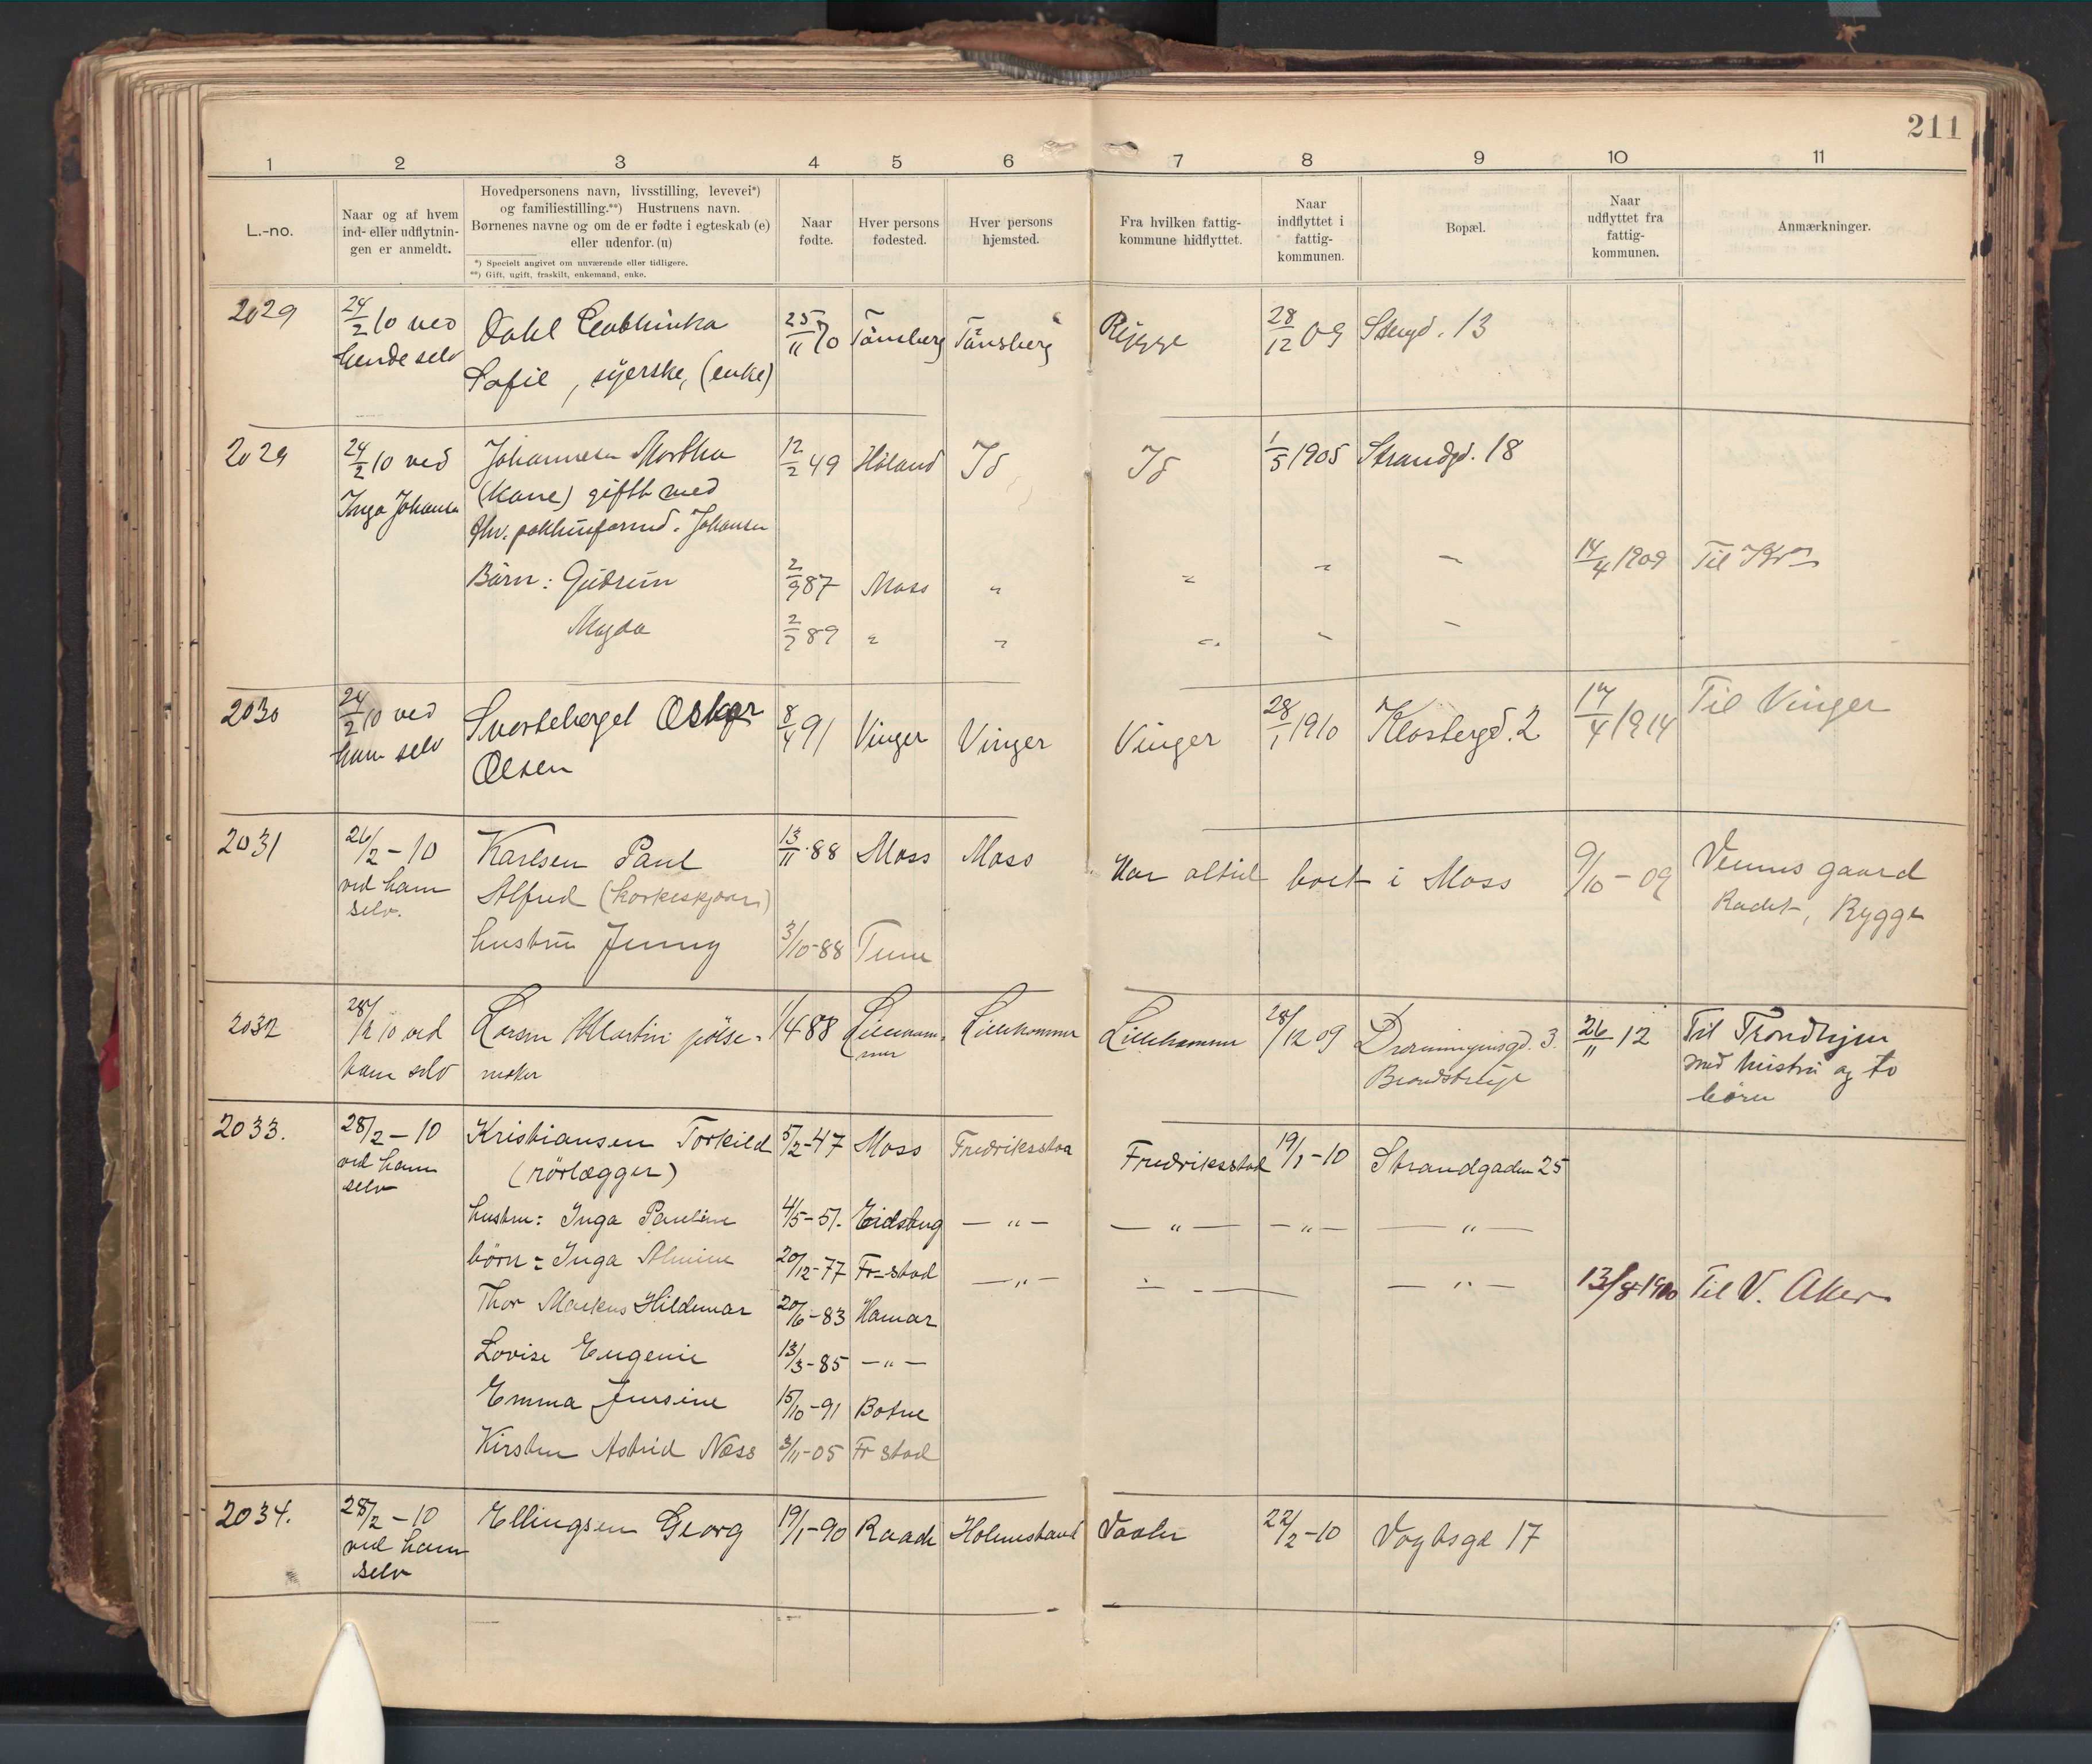 211
1 2 3 4 5 6 7 8 9 10 11
L.-no.
Naar og af hvem
ind- eller udflytnin-
gen er anmeldt.
Hovedpersonens navn, livsstilling, levevei*)
og familiestilling.**) Hustruens navn.
Børnenes navne og om de er fødte i egteskab (e)
eller udenfor. (u)
*) Specielt angivet om nuværende eller tidligere.
**) Gift, ugift, fraskilt, enkemand, enke.
Naar
fødte.
Hver persons
fødested.
Hver persons
hjemsted.
Fra hvilken fattig-
kommune hidflyttet.
Naar
indflyttet i
fattig-
kommunen.
Bopæl.
Naar
udflyttet fra
fattig-
kommunen.
Anmærkninger.
2029 24/2 10 ved Dahl 25/11 70 Tönsberg Tönsberg Rygge 28/12 09 Stengd. 13
hende selv Sofie, syerske, (enke)
2029 24/2 10 ved Johannesen Martha 12/2 49 Höland Id Id 1/5 1905 Strandgd. 18
Inga Johansen (kone) gift med
fhv. pakhusformd. Johansen
Börn: Gudrun 2/9 87 Moss " " " - 14/4 1909 Til Kr.
Magda 2/7 89 " " " - -
2030 24/2 10 ved Svarteberget Oskar 8/4 91 Vinger Vinger Vinger 28/1 1910 Klostergd. 2 17/4 1914 Til Vinger
ham selv Olsen
2031 26/2-10 Karlsen Paul 13/11-88 Moss Moss Har altid boet i Moss 9/10-09 Vennsgaard
ved ham Alfred (korkeskjærer) Radet, Rygge
selv.
hustru Jenny 3/10-88 Tune
2032 28/2 10 ved Larsen Martin pölse- 1/4 88 Lilleham- Lillehammer Lillehammer 28/12 09 Dronningensgd. 3. 26/11 12 Til Trondhjem
ham selv maker mer med hustru og to
börn
2033. 28/2-10 Kristiansen Torkild 5/2-47 Moss Fredriksstad Fredriksstad 19/1-10 Strandgaden 25
ved ham (rörlægger)
selv
hustru: Inga Pauline 4/5-51. Eidsberg — " — — " — — " — — " —
börn: Inga Almine 20/12-77 Fr-stad — " — — " — 13/8-1910 Til V. Aker
Thor Markus Hildemar 20/6-83 Hamar
Lovise Eugenie 13/3-85 — " —
Emma Jensine 15/10-91 Botne
Kirsten Astrid Næss 3/11-05 Fr stad
2034. 28/2-10 Ellingsen Georg 19/1-90 Raade Holmestrand Vaaler 22/2-10 Vogtsgd 17
ved ham
selv